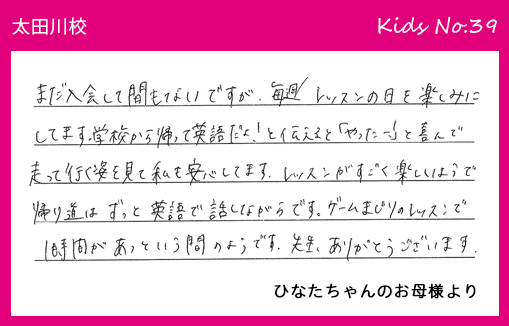 太田川校
Kids No.39
まだ入会して間もないですが、毎週レッスンの日を楽しみに
してます。学校から帰って英語だよ!と伝えると「やったー!」と喜んで
走って行く姿を見て私も安心してます。レッスンがすごく楽しいようで
帰り道はずっと英語で話しながらです。ゲームまじりのレッスンで
1時間があっという間のようです。先生、ありがとうございます。
ひなたちゃんのお母様より